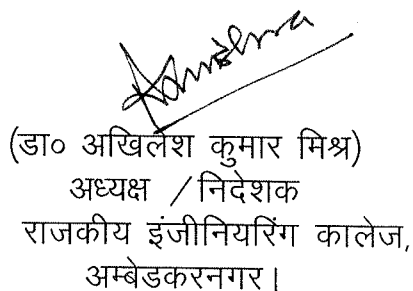 (डा० अखिलेश कुमार मिश्र)
अध्यक्ष /निदेशक
राजकीय इंजीनियरिंग कालेज,
अम्बेडकरनगर।